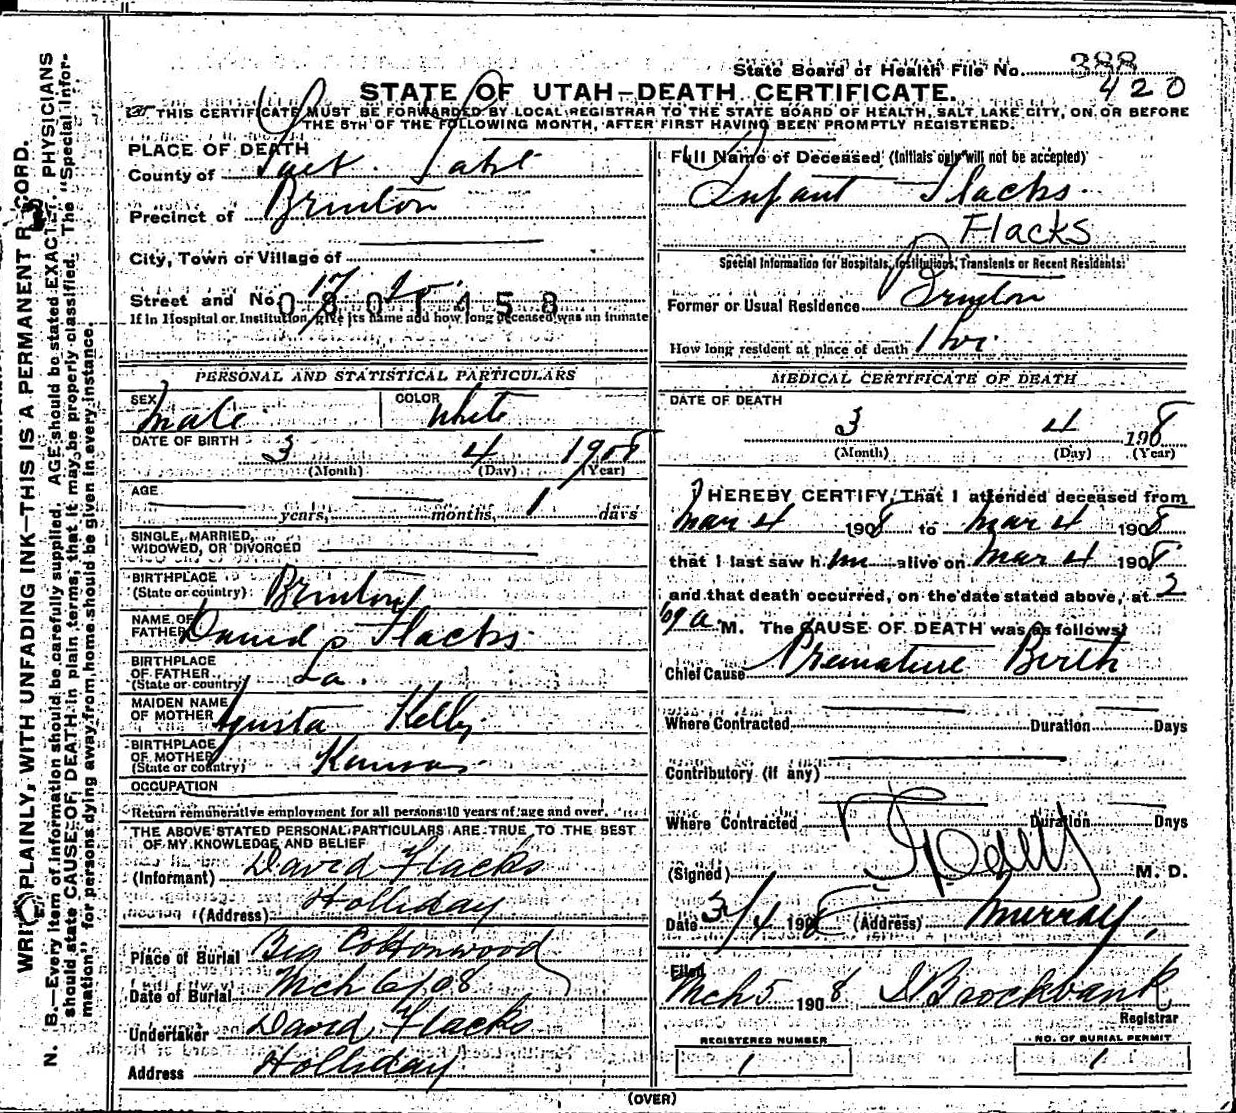 State Board of Health File No. 388
420
STATE OF UTAH—DEATH CERTIFICATE.
THIS CERTIFICATE MUST BE FORWARDED BY LOCAL REGISTRAR TO THE STATE BOARD OF HEALTH, SALT LAKE CITY, ON OR BEFORE
THE 5TH OF THE FOLLOWING MONTH, AFTER FIRST HAVING BEEN PROMPTLY REGISTERED.
WRITE PLAINLY, WITH UNFADING INK—THIS IS A PERMANENT RECORD.
N. B.—Every item of information should be carefully supplied. AGE should be stated EXACTLY. PHYSICIANS
should state CAUSE OF DEATH in plain terms, that it may be properly classified. The "Special Infor-
mation" for persons dying away from home should be given in every instance.
PLACE OF DEATH
County of Salt Lake
Precinct of Brinton
City, Town or Village of
Street and No.
0801458
If in Hospital or Institution, give its name and how long deceased was an inmate
PERSONAL AND STATISTICAL PARTICULARS
SEX Male COLOR White
DATE OF BIRTH 3 4 1908
(Month) (Day) (Year)
AGE
years, months, 1 days
SINGLE, MARRIED,
WIDOWED, OR DIVORCED
BIRTHPLACE
(State or country) Brinton
NAME OF
FATHER David P Flacks
BIRTHPLACE
OF FATHER
(State or country) La.
MAIDEN NAME
OF MOTHER Agusta Kelly
BIRTHPLACE
OF MOTHER
(State or country) Kansas
OCCUPATION
Return remunerative employment for all persons 10 years of age and over.
THE ABOVE STATED PERSONAL PARTICULARS ARE TRUE TO THE BEST
OF MY KNOWLEDGE AND BELIEF
(Informant) David Flacks
(Address) Holliday
Place of Burial Big Cottonwood
Date of Burial Mch 6/08
Undertaker David Flacks
Address Holliday
Full Name of Deceased (Initials only will not be accepted)
Infant Flacks
Flacks
Special Information for Hospitals, Institutions, Transients or Recent Residents:
Former or Usual Residence Brinton
How long resident at place of death 1 hr.
MEDICAL CERTIFICATE OF DEATH
DATE OF DEATH
3 4 1908
(Month) (Day) (Year)
I HEREBY CERTIFY, That I attended deceased from
Mar 4 1908 to Mar 4 1908
that I last saw him alive on Mar 4 1908
and that death occurred, on the date stated above, at 2
a. M. The CAUSE OF DEATH was as follows:
Chief Cause Premature Birth
Where Contracted Duration Days
Contributory (if any)
Where Contracted Duration Days
(Signed) M. D.
Date 3/4 1908 (Address) Murray,
Filed
Mch 5 1908 Brockbank
Registrar
REGISTERED NUMBER
1
NO. OF BURIAL PERMIT
1
(OVER)